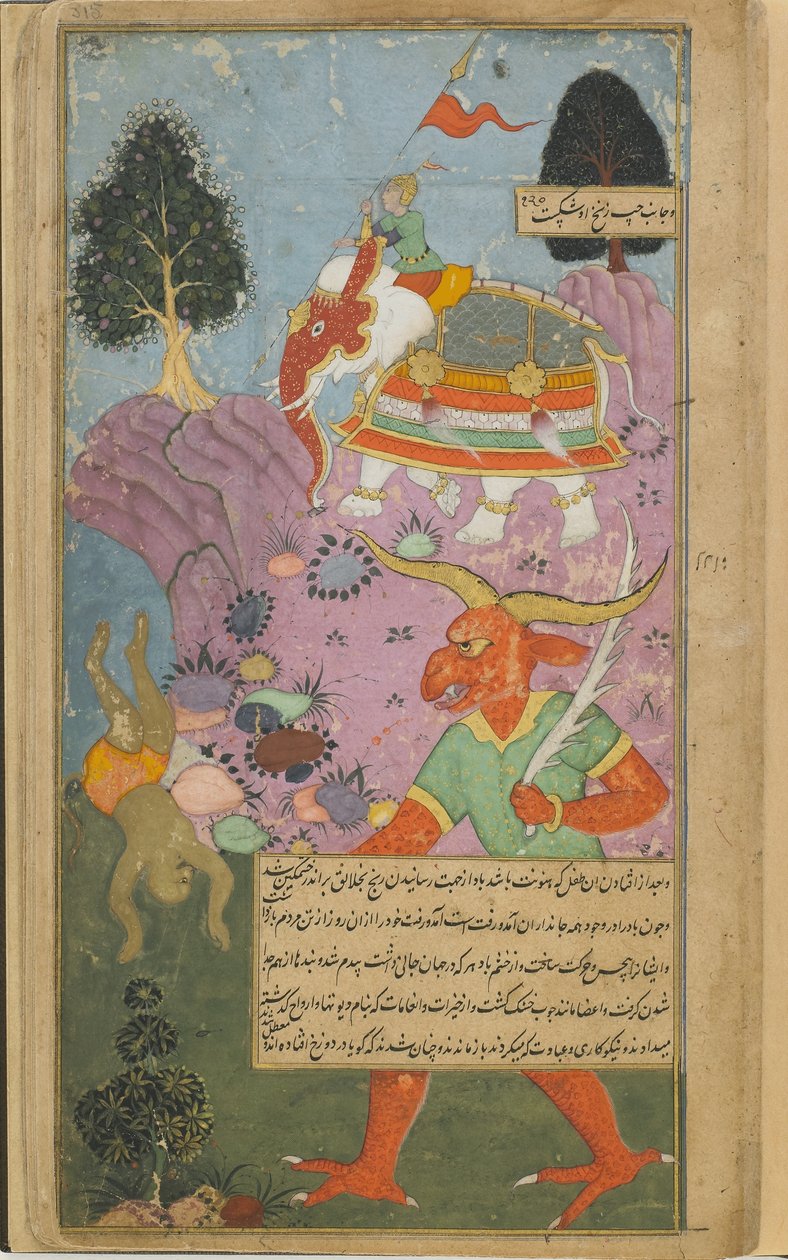 و جانب چپ زنخ او شکست
و بعد از افتادن ان طفل که هنونت باشد باد از جهت رسانیدن رنج بخلائق براندر خشمکین شد
و چون باد را در وجود همه جانداران آمد و رفت است آمد و رفت خود را ازان روز از تن مردم باز داشت
و ایشانرا بیحس و حرکت ساخت و از خشم باد هر که در جهان جانی داشت بیدم شد و بندها از هم جدا
شدن کرفت و اعضا مانند چوب خشک کشت و از خیرات و انعامات که بنام دیوتها و ارواح کذشته
میدادند و نیکوکاری و عبادت که میکردند باز ماندند و چنان شدند که کویا در دوزخ افتاده اند معطل شدند